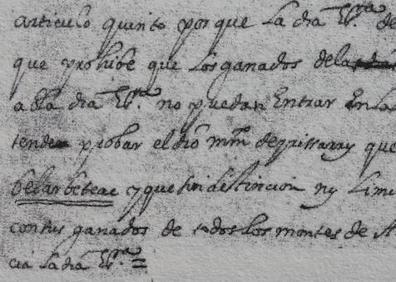 articulo quinto porque la dha Esra de
que prohibe que los ganados dela
alla dha Esra no puedan Entrar En la
tende probar el dho mrn de yrissarry que
belarbeteac y que sin distincion ny Limi
con sus ganados de todos los montes de A
cia la dha Esra =